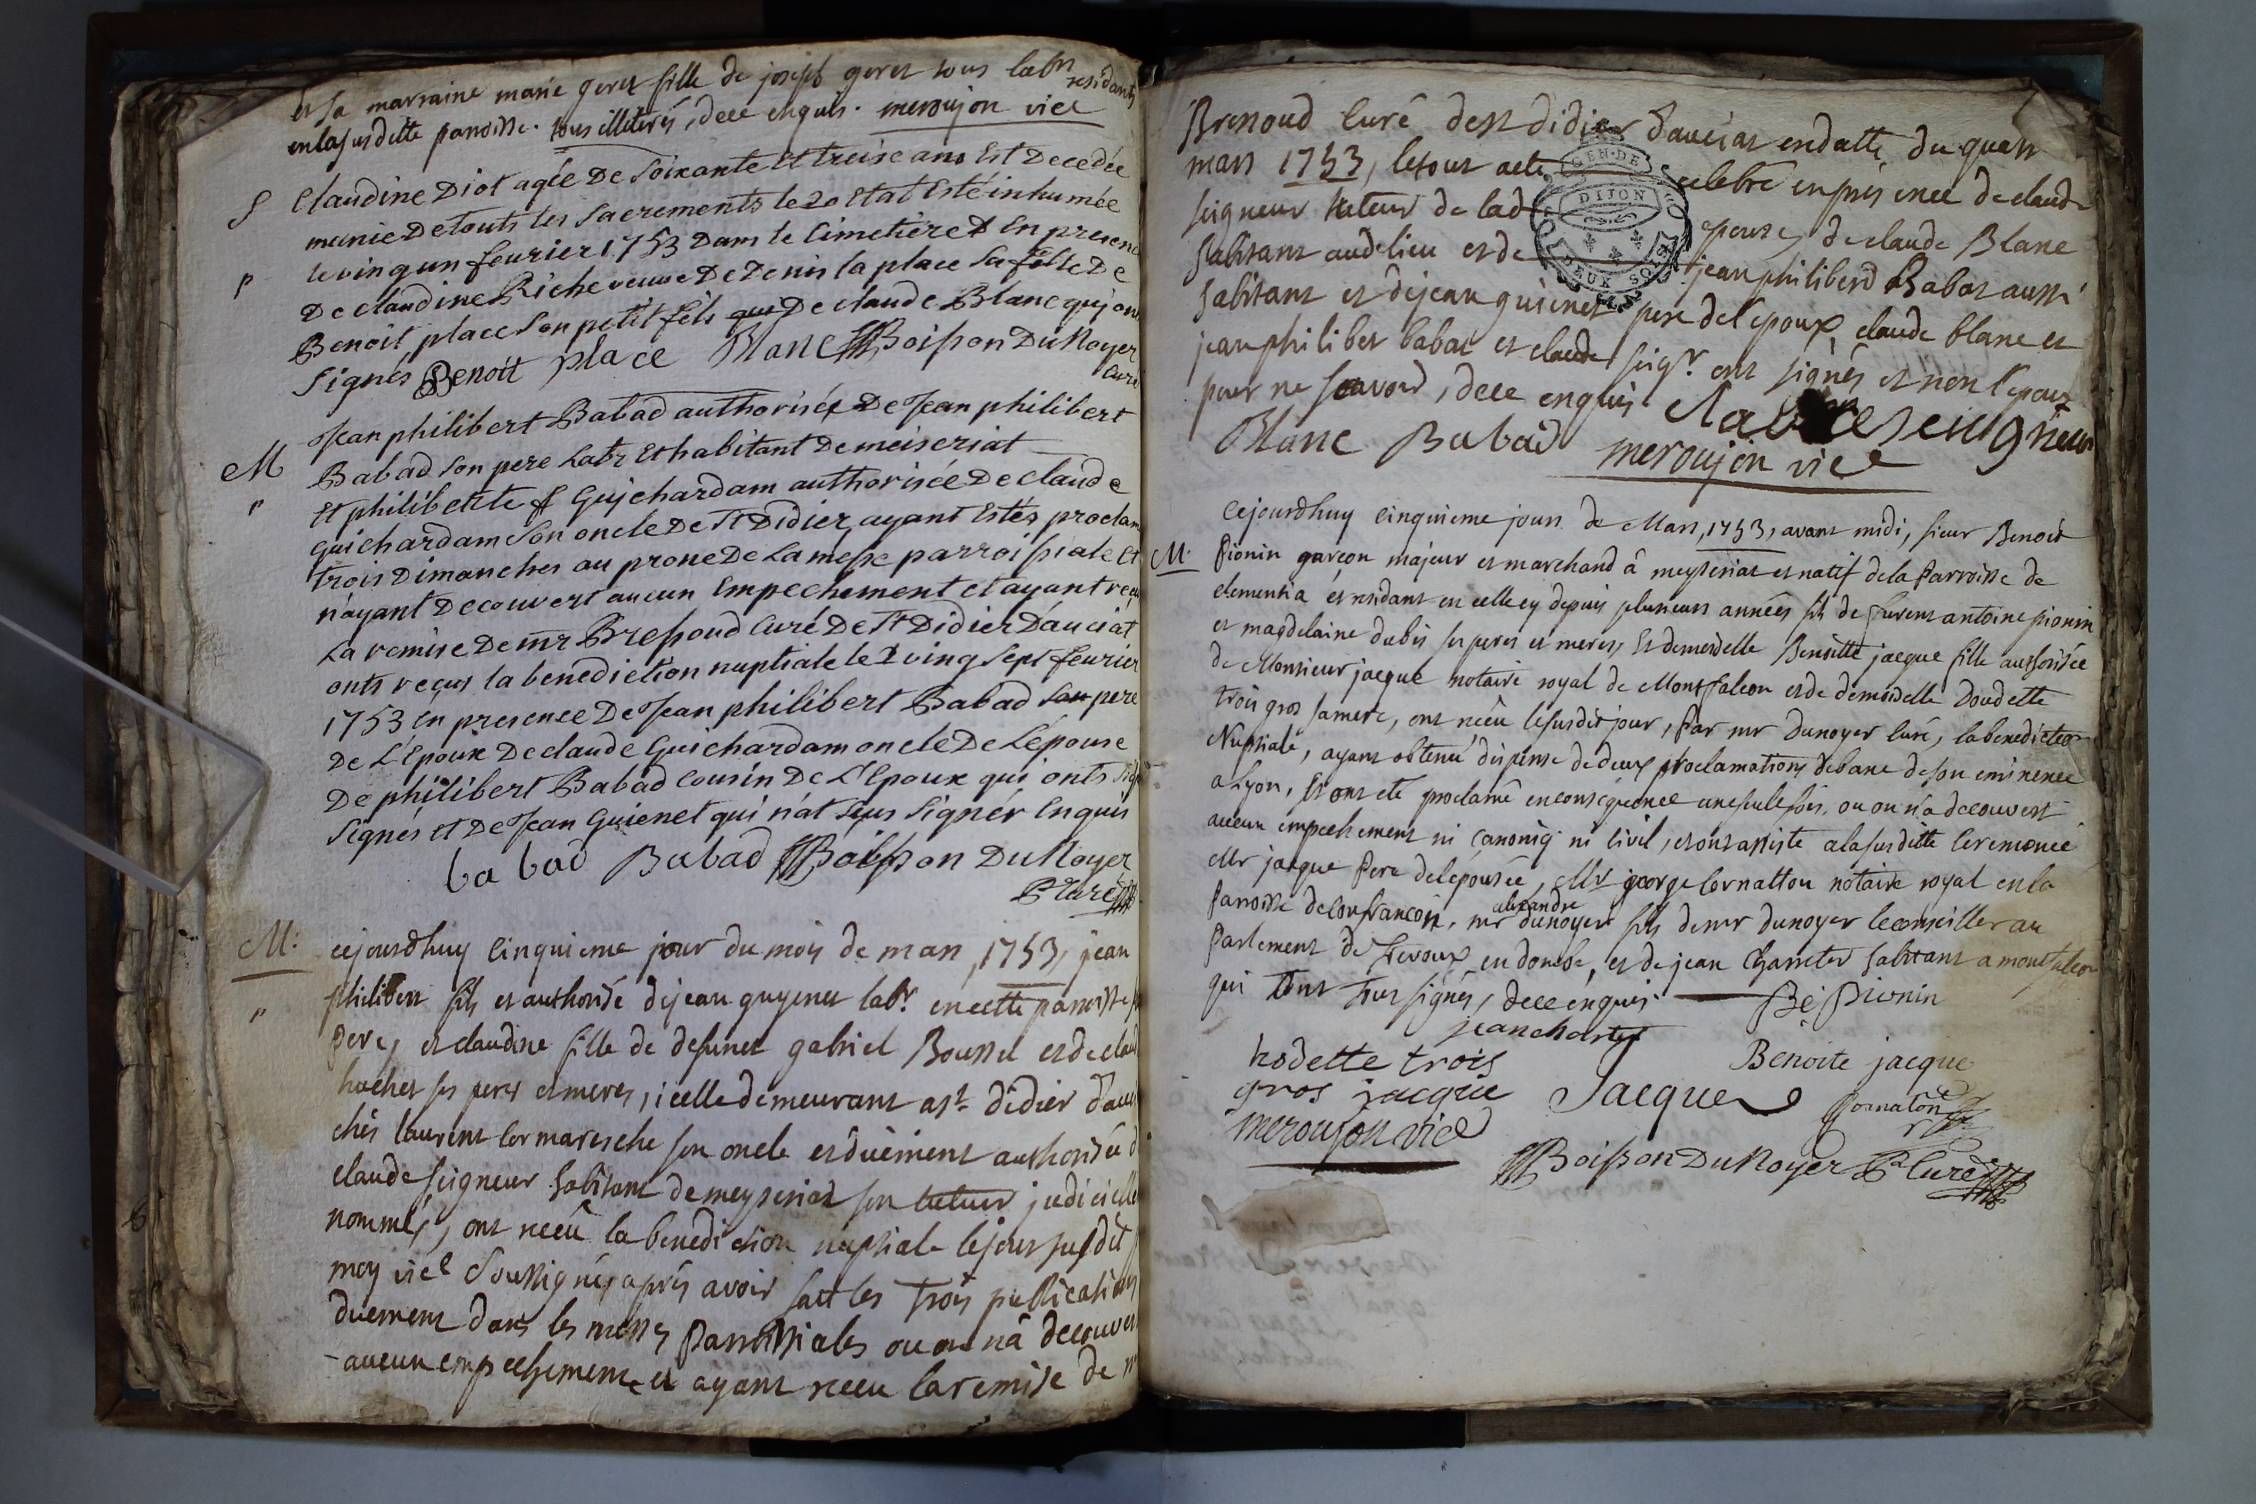 et sa marraine marie goret fille de joseph goret tous labrs residants
en la susditte paroisse. tous illiterés, dece enquis. meroujon vice
S Claudine Diot agée De Soixante et treise ans Est Decedée
munie De touts les Sacrements le 20 Et at Esté inhumée
p le vingun feurier 1753 Dans le Cimetière & En presence
De claudine Riche veuve De Denis la place Sa fille De
Benoit place Son petit fils que De claude Blanc qui ont
Signés Benoit place Blanc Boisson Du Noyer
Curé
Jean philibert Babad authorisé De Jean philibert
M Babad Son pere Labr Et habitant De meiseriat
Et philiberte Guichardam authorisée De claude
Guichardam Son oncle De St Didier, ayant Estés proclam
trois Dimanches au prone De La messe parroissiale Et
n'ayant Decouvert aucun Empechement et ayant reçu
La remise De mr Bressoud Curé De St Didier D'auciat
onts reçus la benediction nuptiale le vingsept feurier
1753 En presence De Jean philibert Babad son pere
De L'Epoux De claude Guichardam oncle De L'épouse
De philibert Babad Cousin De L'Epoux qui onts
Signés et De Jean Guienet qui n'at Sçus Signér Enquis
babad Babad Boisson Du Noyer
Curé
M: cejourdhuy cinquieme jour du mois de mars, 1753, jean
philibert fils et authorisé de jean guyenet labr. en cette paroisse
pere, et claudine fille de defunct gabriel Boussel et de claud
huchet ses peres et meres, icelle demeurant a st. didier d'auci
chés laurent cormaresche son oncle et duëment authorisée d
claude seigneur habitant de meyseriat son tuteur judiciell
nommés, ont receû la benediction nuptiale le jour susdit
moy vice soussignés aprés avoir fait les trois publications
duement dans les messes paroissiales ou on nâ decouver
aucun empechement et ayant receu la remise de mr
Bressoud curé de st didier d'auciat en datte du quatr
mars 1753, le tout acte celebré en présence de claude
seigneur tuteur de lad epouse, de claude Blanc
habitant audit lieu et de jean philiberd Babat aussi
habitant et de jean guienet pere de l'epoux, claude blanc et
jean philibet babat et claude seigr. ont signés et non l'epoux
pour ne sçavoir, dece enquis claude seingneur
Blanc Babad meroujon vice
GEN. DE
DIJON
DEUX SOLS
cejourdhuy cinquieme jour de Mars, 1753, avant midi, sieur Benoit
M: Pionin garçon majeur et marchand â meyseriat et natif de la Parroisse de
clementia et residant en celle cy depuis plusieurs années fils de Laurent antoine pionin
et magdelaine dubis ses peres et meres, Et demoiselle Benoitte jacque fille authorisée
de Monsieur jacque notaire royal de Montfalcon et de demoiselle Doudette
trois gros sa mere, ont receû le susdit jour, Par mr dunoyer curé, la benediction
Nuptiale, ayant obtenû dispense de deux proclamations de banc de son eminence
a Lyon, Et ont eté proclamé en consequence une seule fois, ou on n'a decouvert
aucun empechement ni canoniq ni civil, et ont assisté a la susditte ceremonie
Mr jacque Pere de lépousée, Mr george Cornatton notaire royal en la
Paroisse de confrançon, mr alexandre dunoyer fils de mr dunoyer le conseiller au
Parlement de trevoux en dombe, et de jean Charcter habitant a montfalcon
qui tous tous signés, dece enquis Bé Pionin
jean charter
hodette trois Benoite jacque
gros jacque Jacque Cornaton
meroujon vice
Boisson Du Noyer Curé